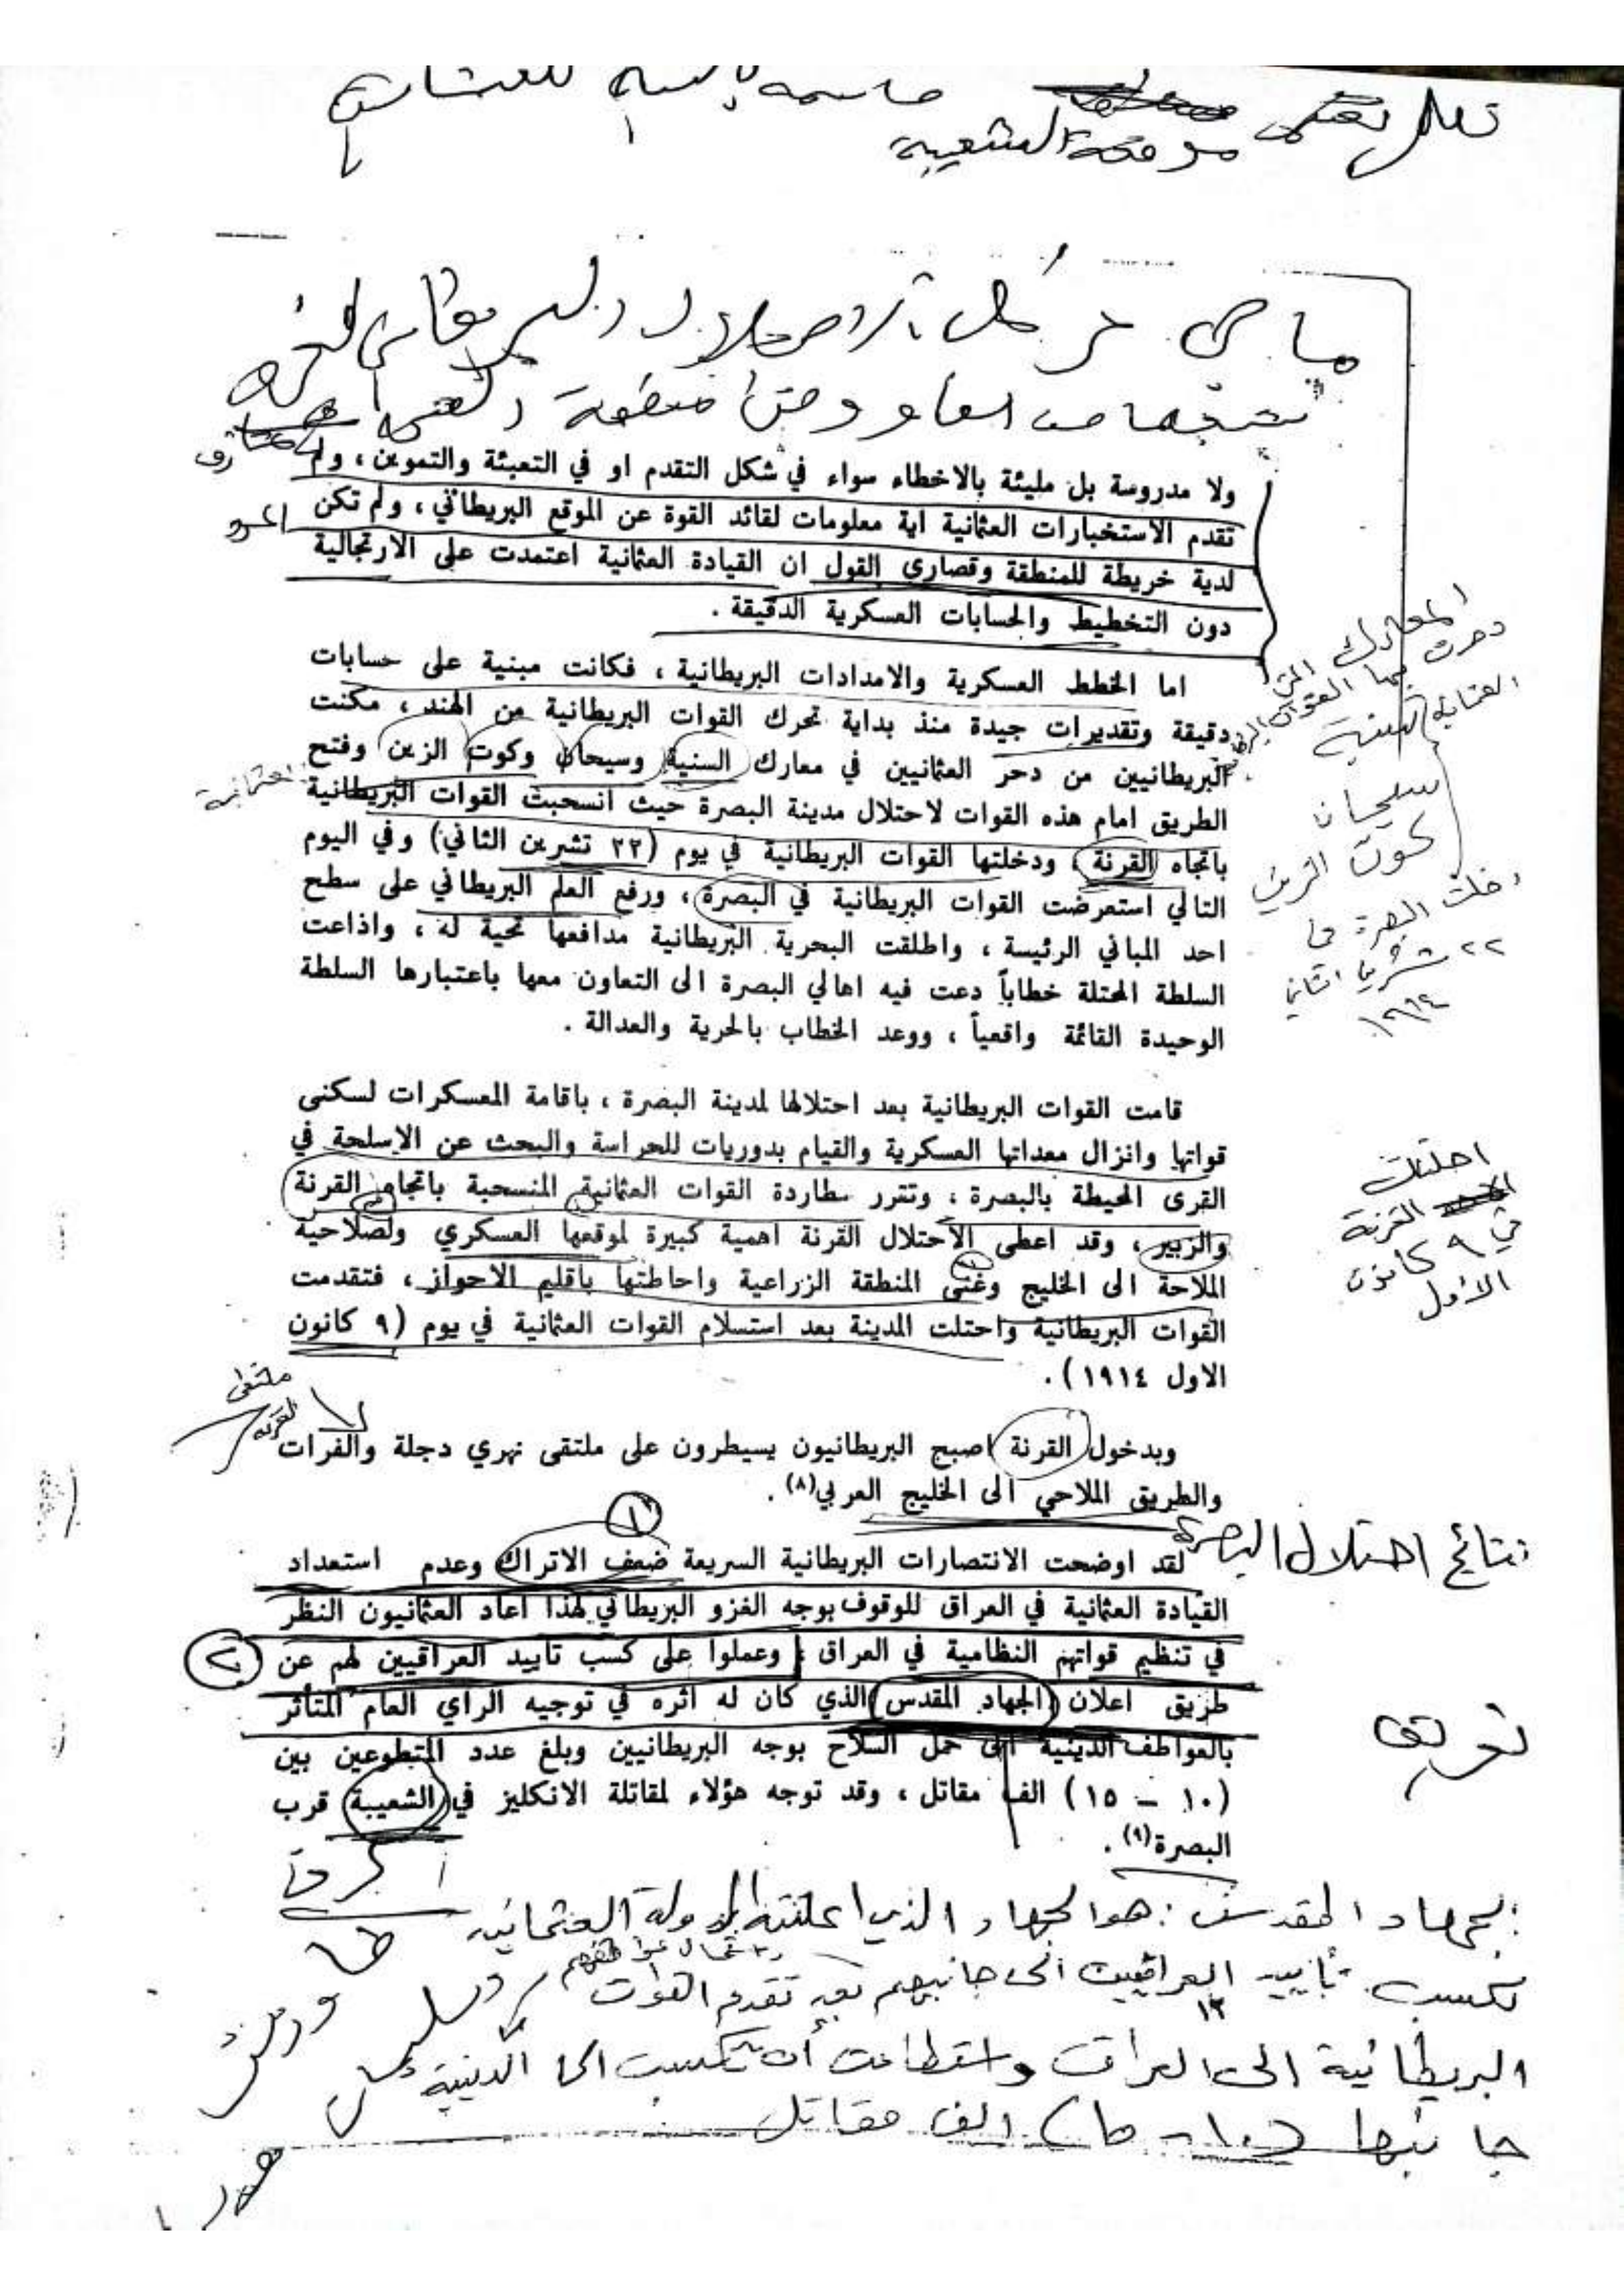 تعلل تعتبر موقعة الشعيبة حاسمة بالنسبة للعثمانيين
ما هي مراحل الاحتلال البريطاني
ولا مدروسة بل مليئة بالاخطاء سواء في شكل التقدم او في التعبئة والتموين ، ولم
تقدم الاستخبارات العثمانية اية معلومات لقائد القوة عن الموقع البريطاني ، ولم تكن
لدية خريطة للمنطقة وقصارى القول ان القيادة العثمانية اعتمدت على الارتجالية
دون التخطيط والحسابات العسكرية الدقيقة .
اما الخطط العسكرية والامدادات البريطانية ، فكانت مبنية على حسابات
دقيقة وتقديرات جيدة منذ بداية تحرك القوات البريطانية من الهند ، مكنت
البريطانيين من دحر العثمانيين في معارك السنية وسيحان وكوت الزين وفتح
الطريق امام هذه القوات لاحتلال مدينة البصرة حيث انسحبت القوات البريطانية
عثمانية
باتجاه القرنة ، ودخلتها القوات البريطانية في يوم (٢٢ تشرين الثاني) وفي اليوم
التالي استعرضت القوات البريطانية في البصرة ، ورفع العلم البريطاني على سطح
احد المباني الرئيسة ، واطلقت البحرية البريطانية مدافعها تحية له ، واذاعت
السلطة المحتلة خطاباً دعت فيه اهالي البصرة الى التعاون معها باعتبارها السلطة
الوحيدة القائمة واقعياً ، ووعد الخطاب بالحرية والعدالة .
المعارك التي
دحرت بها القوات
العثمانية
السنية
سيحان
كوت الزين
دخلت البصرة في
٢٢ تشرين الثاني
١٩١٤
قامت القوات البريطانية بعد احتلالها لمدينة البصرة ، باقامة المعسكرات لسكنى
قواتها وانزال معداتها العسكرية والقيام بدوريات للحراسة والبحث عن الاسلحة في
القرى المحيطة بالبصرة ، وتقرر مطاردة القوات العثمانية المنسحبة باتجاه القرنة
والزبير ، وقد اعطى الاحتلال القرنة اهمية كبيرة لموقعها العسكري ولصلاحية
الملاحة الى الخليج وغنى المنطقة الزراعية واحاطتها باقليم الاحواز ، فتقدمت
القوات البريطانية واحتلت المدينة بعد استسلام القوات العثمانية في يوم (٩ كانون
الاول ١٩١٤) .
احتلت
القرنة
في ٩ كانون
الأول
وبدخول القرنة اصبح البريطانيون يسيطرون على ملتقى نهري دجلة والفرات
والطريق الملاحي الى الخليج العربي(٨) .
ملتقى
القرنة
نتائج احتلال البصرة
١
لقد اوضحت الانتصارات البريطانية السريعة ضعف الاتراك وعدم استعداد
القيادة العثمانية في العراق للوقوف بوجه الغزو البريطاني لهذا اعاد العثمانيون النظر
في تنظيم قواتهم النظامية في العراق ، وعملوا على كسب تاييد العراقيين لهم عن
٢
طريق اعلان الجهاد المقدس الذي كان له اثره في توجيه الراي العام المتأثر
بالعواطف الدينية الى حمل السلاح بوجه البريطانيين وبلغ عدد المتطوعين بين
(١٠ – ١٥) الف مقاتل ، وقد توجه هؤلاء لمقاتلة الانكليز في الشعيبة قرب
البصرة(٩) .
تعريف
الجهاد المقدس : هو الجهاد الذي اعلنته الدولة العثمانية
لكسب تأييد العراقيين الى جانبهم بعد تقدم القوات
١٣
البريطانية الى العراق واستطاعت أن تكسب الى
الدينية
جانبها (١٠ - ١٥) الف مقاتل